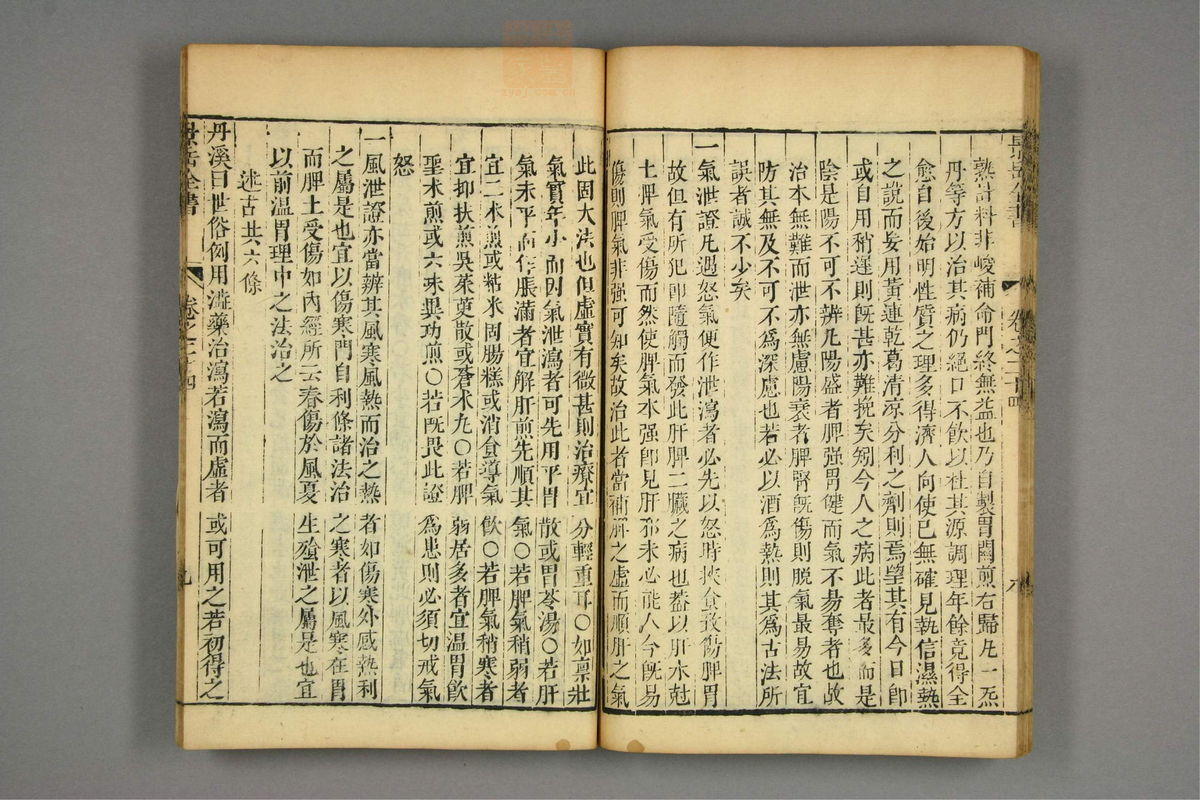 熟計料非峻補命門終無益也乃自製胃關煎右歸丸一炁
丹等方以治其病仍絕口不飲以杜其源調理年餘竟得全
愈自後始明性質之理多得濟人向使已無確見執信濕熱
之說而妄用黃連乾葛清凉分利之劑則焉望其有今日卽
或自用稍遲則旣甚亦難挽矣矧今人之病此者最多而是
陰是陽不可不辨凡陽盛者脾强胃健而氣不昜奪者也故
治本無難而泄亦無慮陽衰者脾腎旣傷則脫氣最易故宜
防其無及不可不爲深慮也若必以酒爲熱則其爲古法所
誤者誠不少矣
一氣泄證凡遇怒氣便作泄瀉者必先以怒時挾食致傷脾胃
故但有所犯卽隨觸而發此肝脾二臟之病也葢以肝木尅
土脾氣受傷而然使脾氣本强卽見肝邪未必能入今旣易
傷則脾氣非强可知矣故治此者當補脾之虛而順肝之氣
此固大法也但虛實有微甚則治療宜分輕重耳○如禀壯
氣實年小而因氣泄瀉者可先用平胃散或胃苓湯○若肝
氣未平而作脹滿者宜解肝煎先順其氣○若脾氣稍弱者
宜二朮煎或粘米固腸糕或消食導氣飲○若脾氣稍寒者
宜抑扶煎吳茱萸散或蒼朮丸○若脾弱居多者宜温胃飲
聖朮煎或六味異功煎○若旣畏此證爲患則必須切戒氣
怒
一風泄證亦當辨其風寒風熱而治之熱者如傷寒外感熱利
之屬是也宜以傷寒門自利條諸法治之寒者以風寒在胃
而脾土受傷如內經所云春傷於風夏生飱泄之屬是也宜
以前温胃理中之法治之
述古共六條
丹溪曰世俗例用澁藥治瀉若瀉而虛者或可用之若初得之
景岳全書
卷之二十四
九
zysj.com.cn